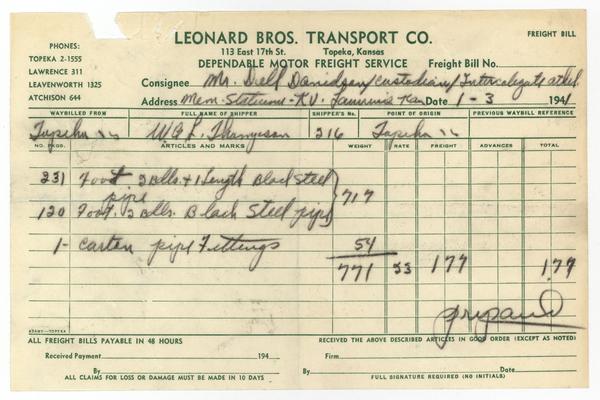 LEONARD BROS. TRANSPORT CO.
FREIGHT BILL
PHONES:
TOPEKA 2-1555
LAWRENCE 311
LEAVENWORTH 1325
ATCHISON 644
113 East 17th St. Topeka, Kansas
DEPENDABLE MOTOR FREIGHT SERVICE
Freight Bill No.
Consignee Mr. Dell Davidson, custodian, Intercolegate athel
Address Mem. Stadium - K.U. Kan Date 1-3 1941
WAYBILLED FROM FULL NAME OF SHIPPER SHIPPER'S No. POINT OF ORIGIN PREVIOUS WAYBILL REFERENCE
Topeka W. A. L. Thompson 216 Topeka
NO. PKGS. ARTICLES AND MARKS WEIGHT RATE FREIGHT ADVANCES TOTAL
231 Foot 2 Bdls. + 1 Length Black Steel pipe } 717
120 Foot. 2 Bdls. Black Steel pipe
1- carton pipe Fittings 54
771 23 177 1.77
prepaid
ALL FREIGHT BILLS PAYABLE IN 48 HOURS
RECEIVED THE ABOVE DESCRIBED ARTICLES IN GOOD ORDER (EXCEPT AS NOTED)
Received Payment 194 Firm
By By Date
ALL CLAIMS FOR LOSS OR DAMAGE MUST BE MADE IN 10 DAYS
FULL SIGNATURE REQUIRED (NO INITIALS)